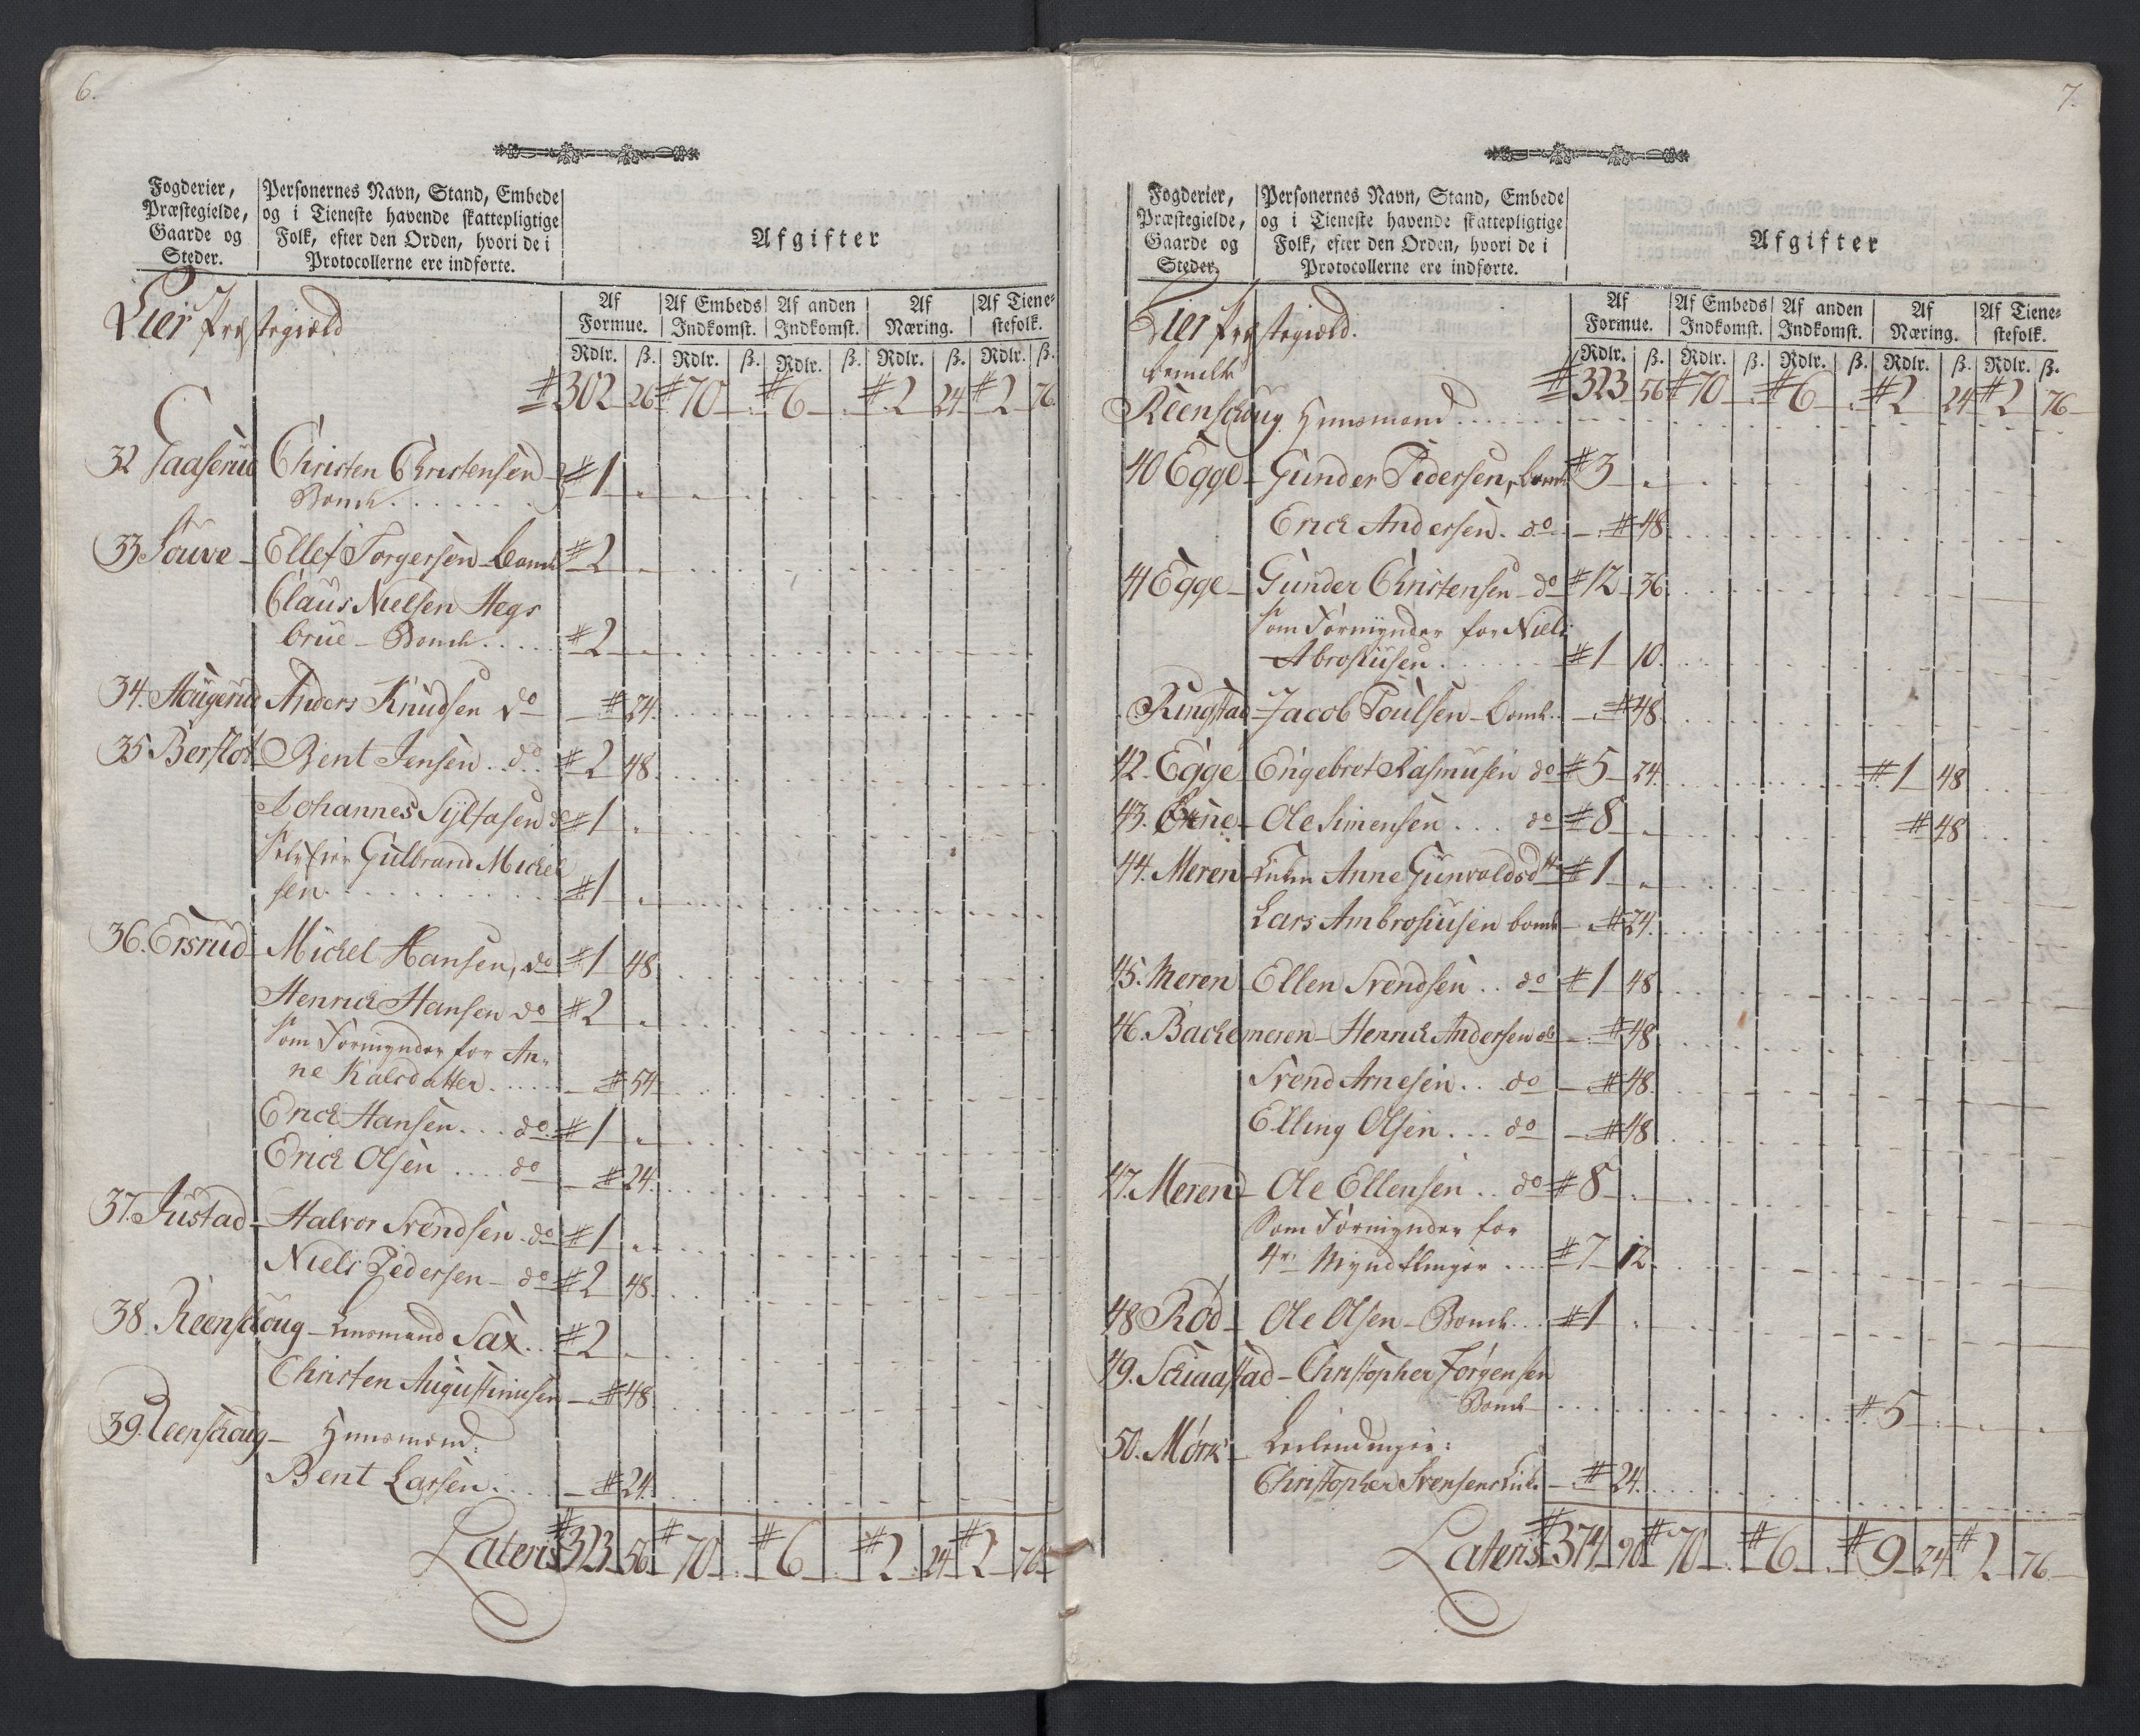 6.
Fogderier,
Præstegielde,
Gaarde og
Steder.
Personernes Navn, Stand, Embede
og i Tieneste havende skattepligtige
Folk, efter den Orden, hvori de i
Protocollerne ere indførte.
Afgifter
Af Formue. Af Embeds Indkomst. Af anden Indkomst. Af Næring. Af Tienestefolk.
Rdlr. ß. Rdlr. ß. Rdlr. ß. Rdlr. ß. Rdlr. ß.
Lier Præstegield
302 26 70 — 6 — 2 24 2 76
32 Gaaserud Christen Christensen
Bonde 1 -
33 Souve - Ellef Torgersen - Bonde 2 -
Claus Nielsen Hegs
brue - Bonde 2 -
34. Haugerud Anders Knudsen do - 24.
35 Berflot Bent Jensen do 2 48.
Johannes Syltasen do 1 -
Gulbrand Michel
sen 1 -
36. Ersrud - Michel Hansen, do 1 48
Henrich Hansen do 2 -
Som Formynder for An-
ne Kalsdatter - 54
Erich Hansen do 1 -
Erich Olsen do - 24.
37. Justad - Halvor Svendsen do 1 -
Niels Pedersen - do 2 48.
38. Reenschoug - Lensmand Sax 2 -
Christen Augustinusen - 48
39. Reenschoug - Huusmænd:
Bent Larsen - 24.
Lateris 323 56 70 — 6 — 2 24 2 76
7.
Fogderier,
Præstegielde,
Gaarde og
Steder.
Personernes Navn, Stand, Embede
og i Tieneste havende skattepligtige
Folk, efter den Orden, hvori de i
Protocollerne ere indførte.
Afgifter
Af Formue. Af Embeds Indkomst. Af anden Indkomst. Af Næring. Af Tienestefolk.
Rdlr. ß. Rdlr. ß. Rdlr. ß. Rdlr. ß. Rdlr. ß.
Lier Præstegield.
bemelte 323 56 70 — 6 — 2 24 2 76
Reenschoug Huusmænd
40 Egge - Gunder Pedersen, bonde 3 -
Erich Andersen. do - 48
41 Egge - Gunder Christensen - do 12 36
Som Formynder for Niels
Abrosiusen 1 10.
Ringstad - Jacob Poulsen - bonde - 48
42. Egge Engebret Rasmusen do 5 24. 1 48
43. Ørne - Ole Simensen do 8 - 48
44. Meren - Enken Anne Gunvaldsdtr 1 -
Lars Ambrosiusen bonde - 24.
45. Meren Ellen Svendsen do 1 48
46. Bachemeren - Henrich Andersen do - 48
Svend Arnesen do - 48.
Elling Olsen do - 48
47. Meren - Ole Ellensen do 8 -
Som Formynder for
4re Myndtlinger 7 12.
48 Rød - Ole Olsen - Bonde 1 -
49. Schiaastad - Christopher Jørgensen
Bonde 5 -
50. Mørk - Leilendinger:
Christopher Svensens Enke - 24.
Lateris 374 90 70 — 6 — 9 24 2 76